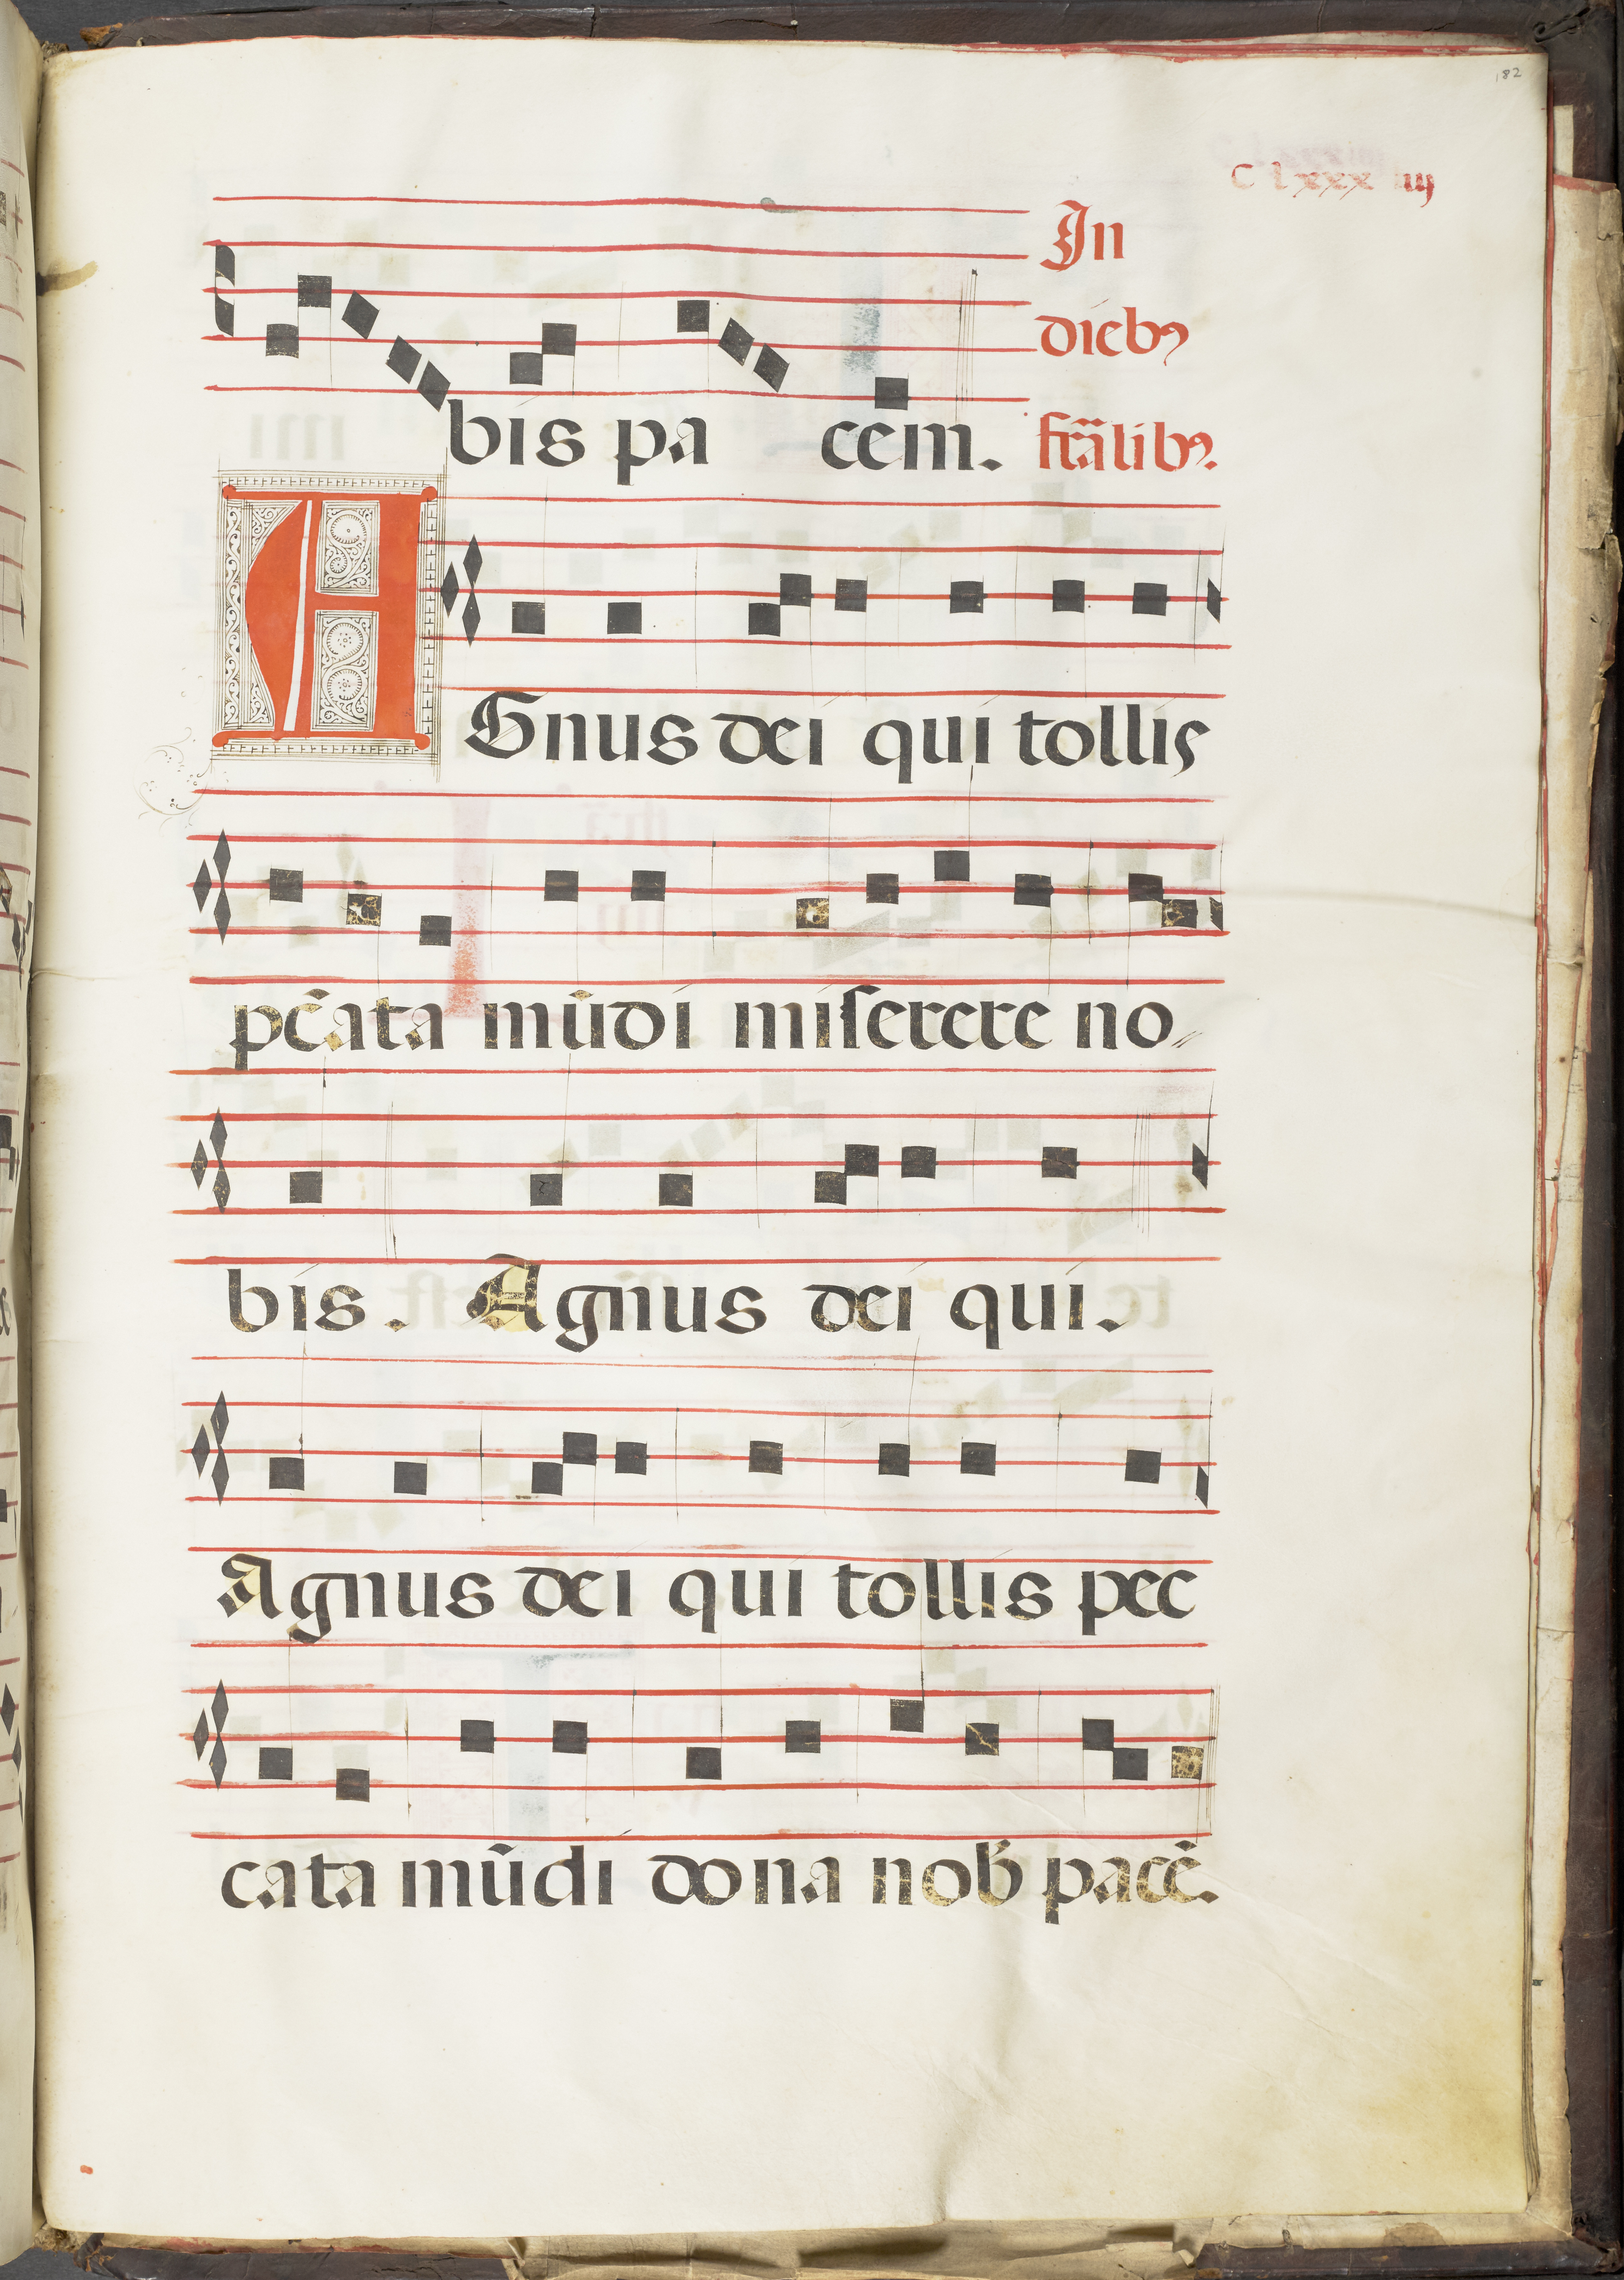 182
C lxxx iiij
In
diebꝰ
bis pa cem. fr̃alibꝰ.
AGnus dei qui tollis
pc̃ata mũdi miserere no
bis. Agnus dei qui.
Agnus dei qui tollis pec
cata mũdi dona nob̃ pacẽ.